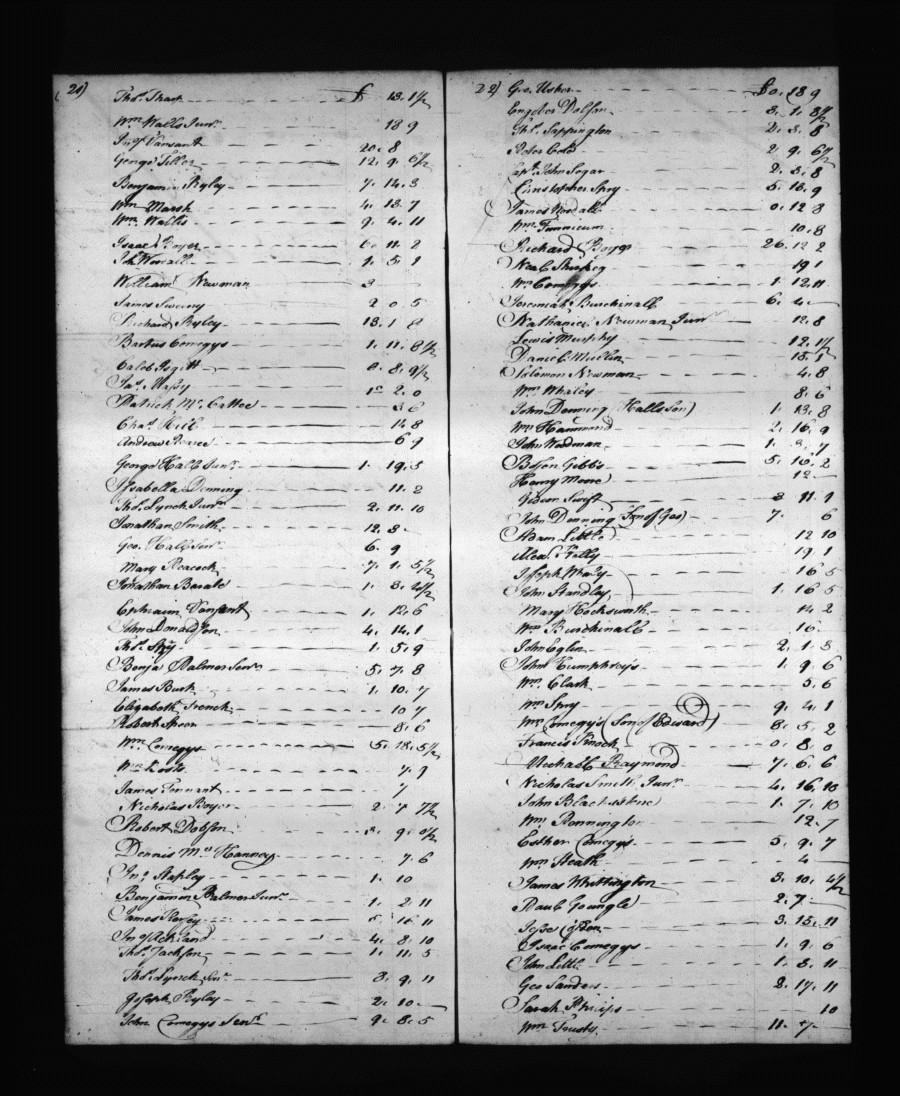 21)
Thos. Tharp £ 13. 1 1/2
Wm. Walls Junr. 18 9
Jno. Vansant 20. 8
George Tiller 12. 9. 6 1/2
Benjamin Ryley 7. 14. 3
Wm. Marsh 4. 13. 7
Wm. Wallis 9. 4. 11
Isaac Boyer 6. 11. 2
Worrall 1. 5. 1
William Newman 3
James Sweeny 2 0 5
Richard Ryley 13. 1 8
Bartus Comegys 1. 11. 8 1/2
Caleb 8. 9 1/2
Jas. Massy 2. 0
Patrick Mc. Cattee 3 6
Chas. Hill 14 8
Andrew Pearce 6 9
George Hall Junr. 1. 19. 3
Ysabella Denning 11. 2
Thos. Lynch Junr. 2. 11. 10
Jonathan Smith 12. 8
Geo. Hall Senr. 6. 9
Mary Peacock 7. 1. 5 1/2
Jonathan 1. 3.
Ephraim Vansant 1. 12. 6
John Donaldson 4. 14. 1
Thos. Spry 1. 5. 9
Benja. Palmer Senr. 5. 7. 8
James Burk 1. 10. 7
Elizabeth French 10 7
Robert Speer 8. 6
Wm. Comegys 5. 18. 5 1/2
Wm. 7. 9
James Tennant 7
Nicholas Boyer 2. 7 7 1/2
Robert Dobson 9.
Dennis Mc. Hanney 7. 6
Jno. Stapley 1. 10
Benjamin Palmer Junr. 1. 2. 11
James 5. 16 11
Jno. Ackland 4. 8. 10
Thos. Jackson 1. 11. 5
Thos. Lynch Senr. 3. 9. 11
Joseph Ryley 2. 10
John Comegys Senr. 9. 8. 5
22) Geo. Usher £0. 18 9
Engelber Dolfan 3. 1. 3 1/2
Thos. Sappington 2. 3. 8
Peter Cole 2. 9. 6 1/2
Capt. John Segar 2. 3. 8
Christopher Spry 5. 13. 9
James Woodall 0. 12 3
Wm. Tunnicum 10. 8
Richard Boyer 26. 12 2
Neal Sharkey 19 1
Wm. Comegys 1. 12. 11
Jeremiah Burchinall 6. 4.
Nathaniel Newman Junr. 12. 8
Lewis Murphy 12. 1 1/2
Daniel Mullen 15. 1
Solomon Newman 4. 8
Wm. Whaley 8. 6
John Denning (Halls Son) 1. 13. 8
Wm. Hammond 2. 16. 9
John Woodman 1. 3. 7
Bosen Gibbs 5. 10. 2
Henry Moore 12
Gideon Swift 3 11. 9
John Denning (Son of Geo) 7. 6
Adam Little 12 10
Alexr. Kelly 19. 1
Joseph Macy 16 5
John Standley 1. 16 5
Mary Hocksworth 14. 2
Wm. Burchinall 16
John Eglin 2. 1. 3
John Humphreys 1. 9. 6
Wm. Clark 5. 6
Wm. Spry 9. 4. 1
Wm. Comegys (Son of Edward) 8. 5. 2
Francis Pinock 0. 8. 0
Michael Raymond 7. 6. 6
Nicholas Smith Junr. 4. 16. 10
John Blackistone 1. 7. 10
Wm. Pennington 12. 7
Esther Comegys 5. 9. 7
Wm. Heath 4
James Whittington 3. 10. 4 1/2
Paul Youngle 2. 7
Jesse Cosden 3. 15. 11
Isaac Comegys 1. 9. 6
John Little 1. 8. 11
Geo Sanders 2. 17. 11
Sarah Philips 10
Wm. Trusty 11. 7